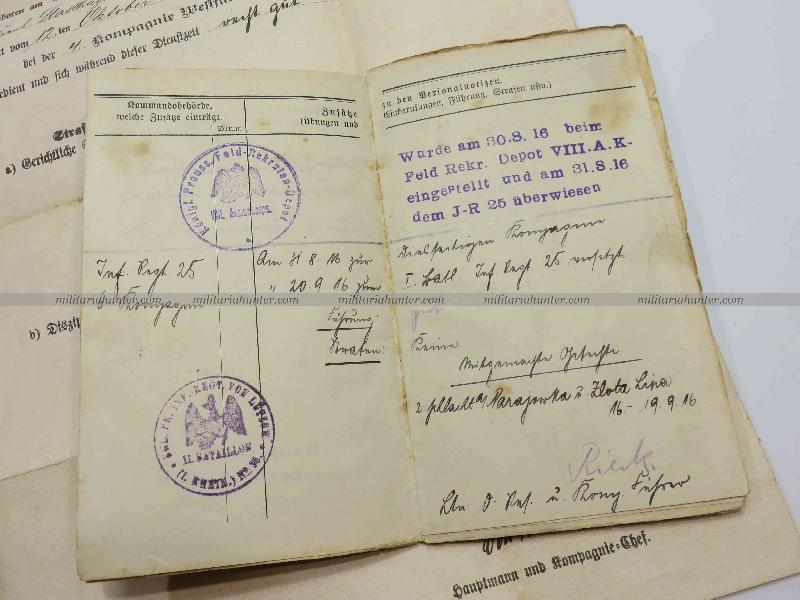 12ten Oktober
bei der 4. Kompagnie
recht gut
edient und sich während dieser Dienstzeit
a) Gerichtliche
Kommandobehörde,
welche Zusätze einträgt.
Datum
Zusätze
(Übungen und
Königl. Preuss. Feld-Rekruten-Depot
VIII. Armeekorps.
Inf. Regt. 25
6. Kompagnie
Am 31 8. 16 zur
" 20. 9 16 zum
Führung:
Strafen:
KGL. PR. INF. REGT. VON LÜTZOW
II. BATAILLON
(1. RHEIN.) No 25.
zu den Personalnotizen.
(Einberufungen, Führung, Strafen usw.)
Wurde am 30.8. 16 beim
Feld Rekr. Depot VIII.A.K-
eingestellt und am 31.8.16
dem J-R 25 überwiesen
diesseitigen Kompagnie
I. Batl. Inf. Regt. 25 versetzt.
gut
Keine.
Mitgemachte Gefechte
Schlacht a/ Narajowka u. Zlota Lipa
16.- 19. 9. 16
Ltn. d. Res. u. Komp. Führer
Hauptmann und Kompagnie-Chef.
militariahunter.com militariahunter.com militariahunter.com militariahunter.com militariahunter.com